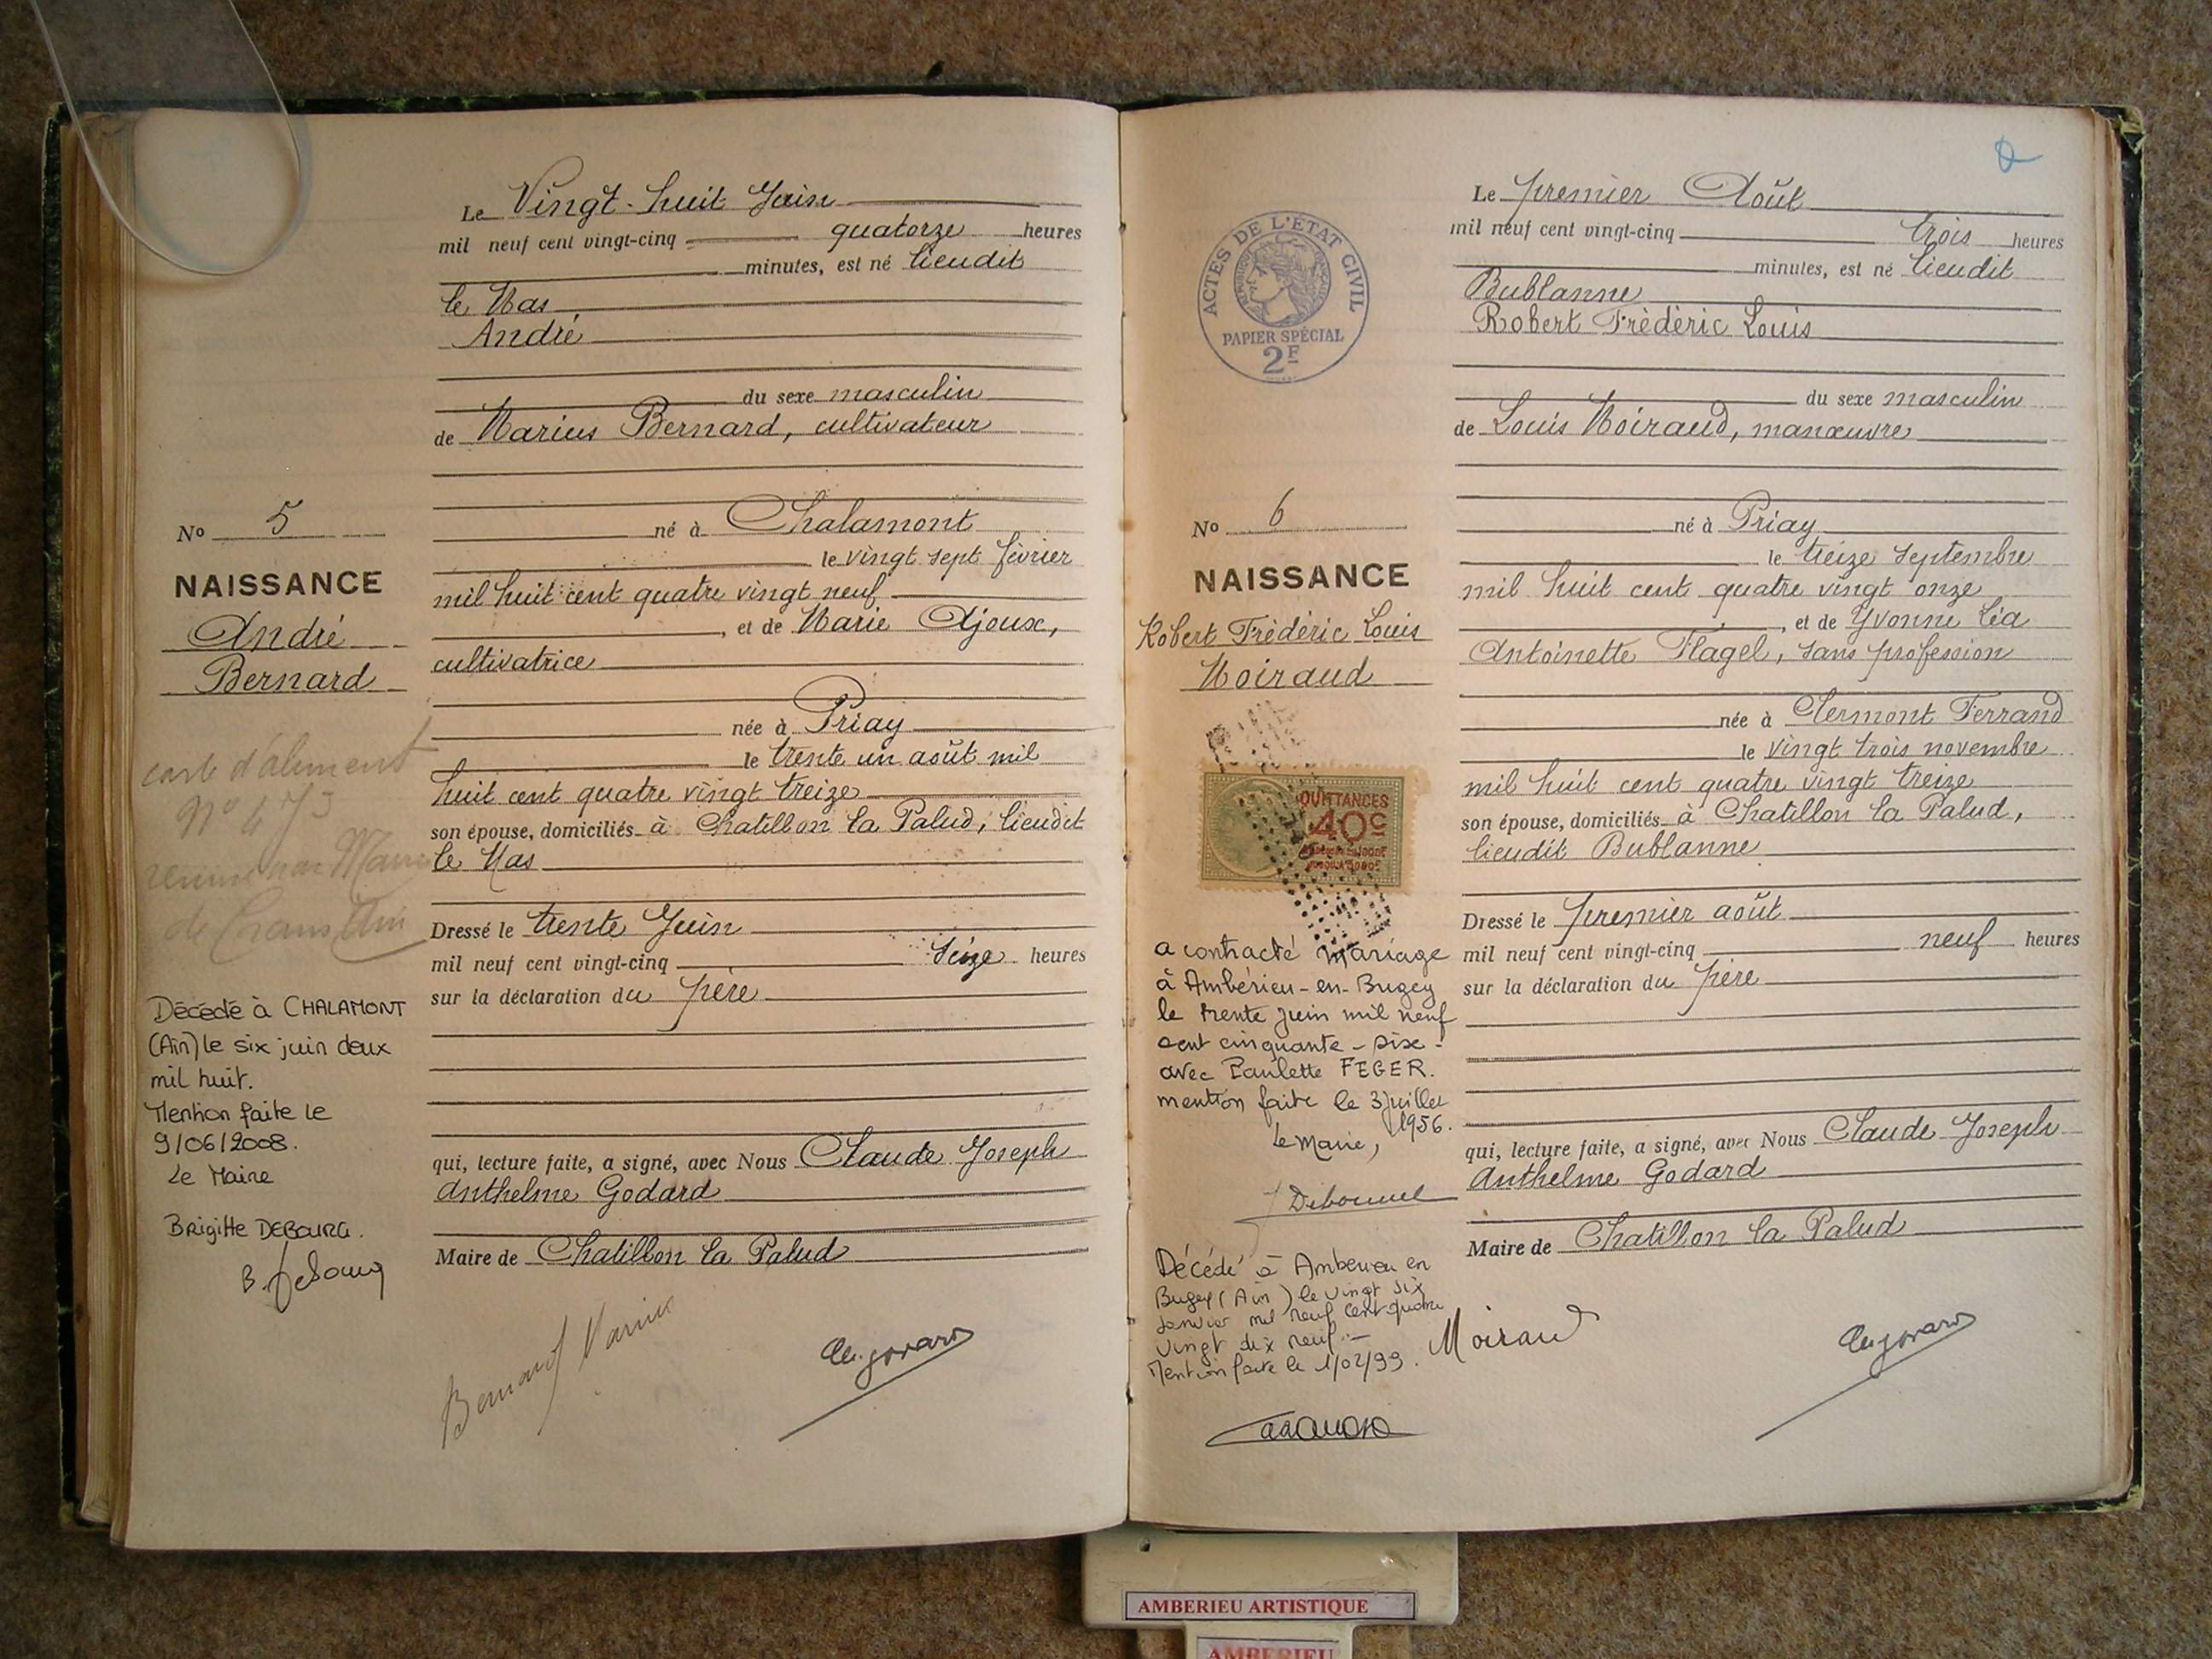 Le Vingt-huit Juin
mil neuf cent vingt-cinq quatorze heures
minutes, est né lieudit
le Mas
André
du sexe masculin
de Marius Bernard, cultivateur
né à Chalamont
le vingt sept février
mil huit cent quatre vingt neuf
, et de Marie Ajoux,
cultivatrice
née à Priay
le trente un août mil
huit cent quatre vingt treize
son épouse, domiciliés à Chatillon la Palud, lieudit
le Mas
Dressé le trente Juin
mil neuf cent vingt-cinq seize heures
sur la déclaration du père
qui, lecture faite, a signé, avec Nous Claude Joseph
Anthelme Godard
Maire de Chatillon la Palud
Bernard Marius
No 5
NAISSANCE
André
Bernard
carte d'aliment
No
de
Décédé à CHALAMONT
(Ain) le six juin deux
mil huit.
Mention faite le
9/06/2008.
Le Maire
Brigitte DEBOURG.
B. Debourg
ACTES DE L'ÉTAT CIVIL
PAPIER SPÉCIAL
2F
No 6
NAISSANCE
Robert Frédéric Louis
Moiraud
QUITTANCES
40c
a contracté mariage
à Ambérieu-en-Bugey
le trente juin mil neuf
cent cinquante-six-
avec Paulette FEGER.
mention faite le 3 juillet
1956.
Le Maire,
Décédé à Amberieu en
Bugey (Ain) le vingt six
Janvier mil neuf cent quatre
vingt dix neuf.-
Mention faite le 1/02/99.
Le premier Août
mil neuf cent vingt-cinq trois heures
minutes, est né lieudit
Bublanne
Robert Frédéric Louis
du sexe masculin
de Louis Moiraud, manœuvre
né à Priay
le treize septembre
mil huit cent quatre vingt onze
, et de Yvonne Léa
Antoinette Flagel, sans profession
née à Clermont Ferrand
le vingt trois novembre
mil huit cent quatre vingt treize
son épouse, domiciliés à Chatillon la Palud,
lieudit Bublanne
Dressé le premier août
mil neuf cent vingt-cinq neuf heures
sur la déclaration du père
qui, lecture faite, a signé, avec Nous Claude Joseph
Anthelme Godard
Maire de Chatillon la Palud
Moiraud
AMBERIEU ARTISTIQUE
AMBERIEU